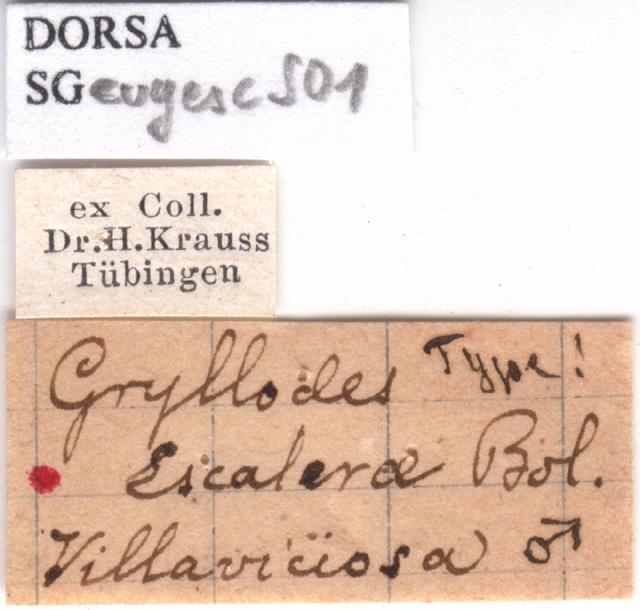 DORSA
SGeugescS01
ex Coll.
Dr.H.Krauss
Tübingen
Gryllodes Type!
Escaleræ Bol.
Villaviciosa ♂